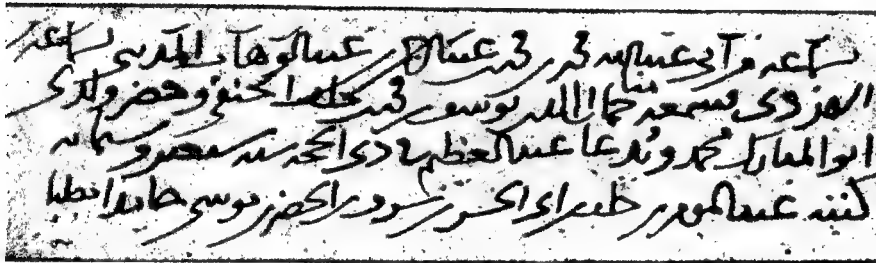 بسماعه من أبي عبد الله محمد بن محمد بن عبد بن عبد الوهاب بسماعه
فسمعه جمال الدين يوسف بن محمد الحنفي وحضر ولدي
ابو المبارك محمد ويدعا عبد العظيم في ذي الحجة سنة سبعين وستمائة
كتبه عبد المومن بن خلف بن ابي الحسن بن شرف بن الخضر بن موسى حامدا مصليا